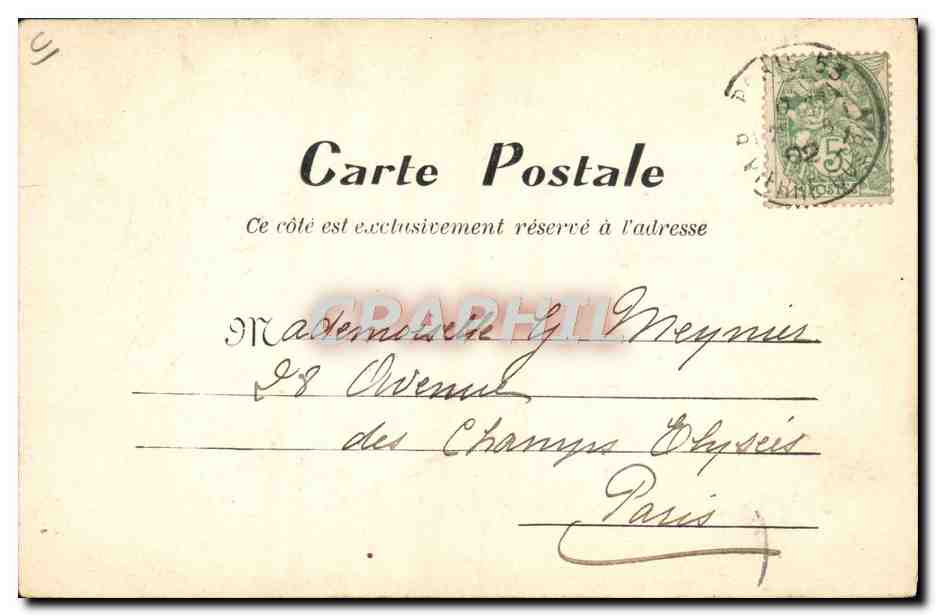 PARIS 53
02
5
POSTES
Carte Postale
Ce côté est exclusivement réservé à l'adresse
CPAPHIL
Mademoiselle G. Meynier
28 Avenue
des Champs Elysées
Paris